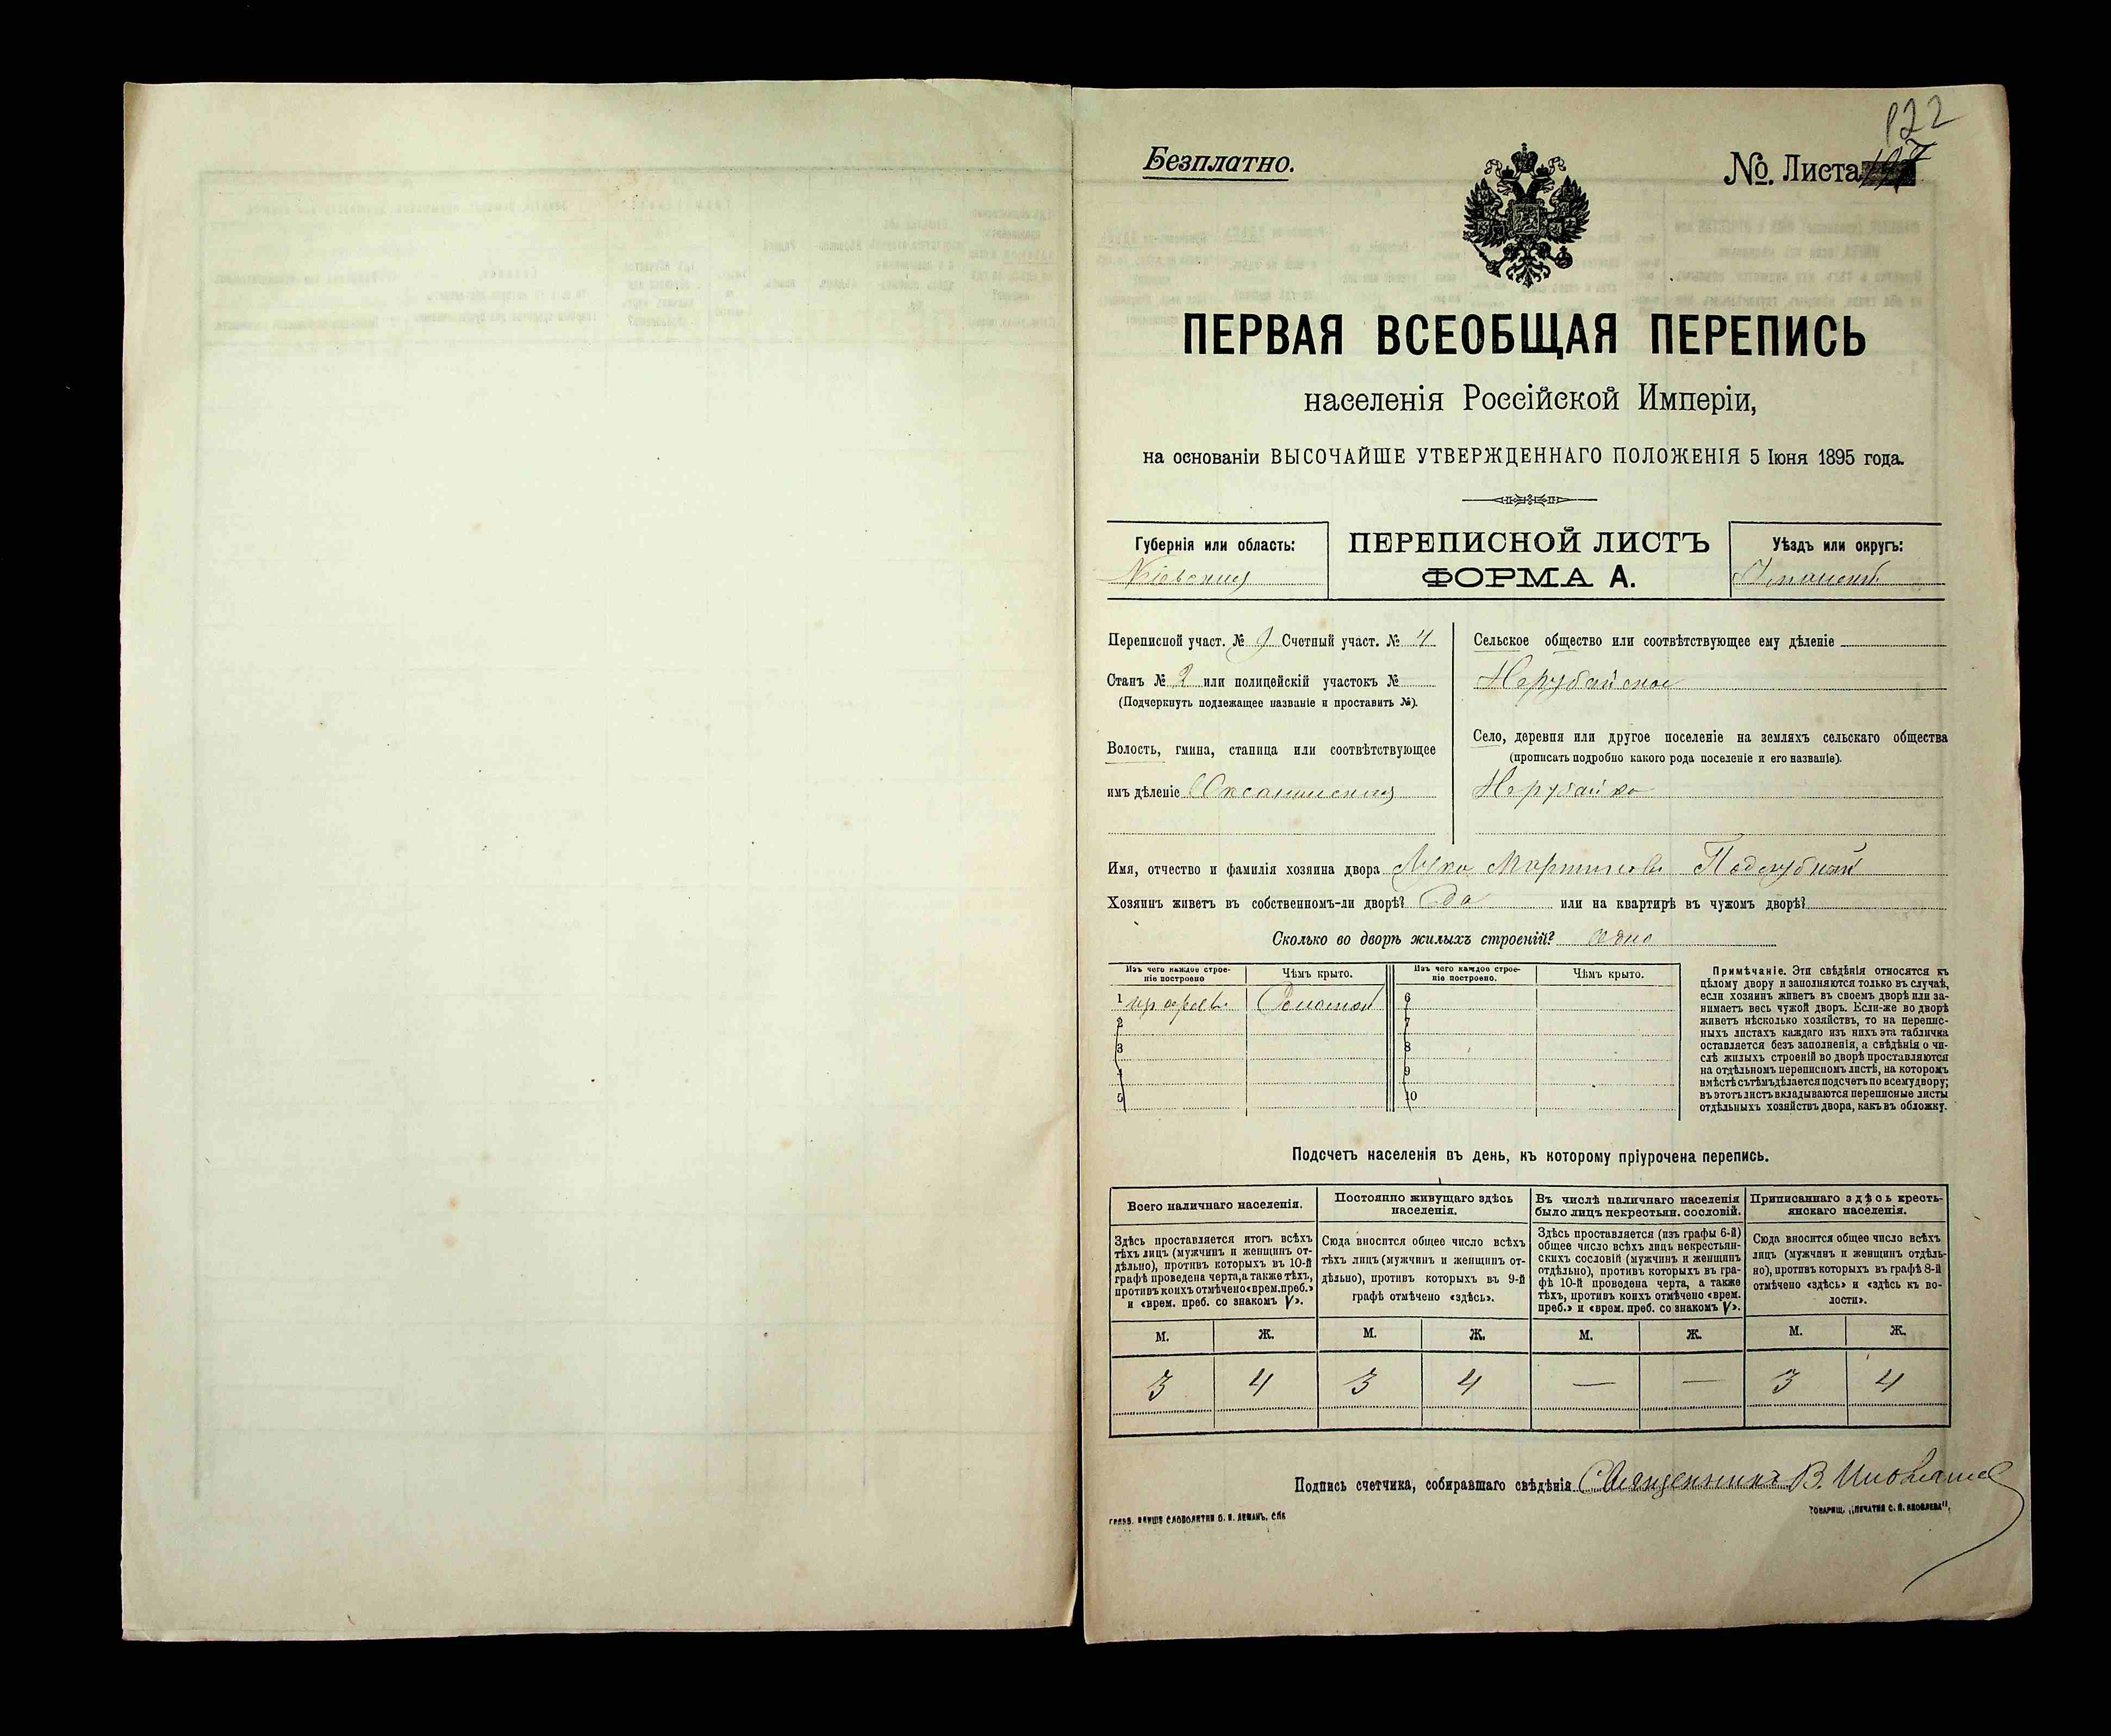 122
Безплатно.
№. Листа
ПЕРВАЯ ВСЕОБЩАЯ ПЕРЕПИСЬ
населенія Россійской Имперіи,
на основаніи ВЫСОЧАЙШЕ УТВЕРЖДЕННАГО ПОЛОЖЕНІЯ 5 Іюня 1895 года.
Губернія или область:
Кіевская
ПЕРЕПИСНОЙ ЛИСТЪ
ФОРМА А.
Уѣздъ или округъ:
Уманскій
Переписной участ. № 9 Счетный участ. № 4
Станъ № 2 или полицейскій участокъ №
(Подчеркнуть подлежащее названіе и проставить №).
Волость, гмина, станица или соотвѣтствующее
имъ дѣленіе Оксанинская
Сельское общество или соотвѣтствующее ему дѣленіе
Нерубайское
Село, деревня или другое поселеніе на земляхъ сельскаго общества
(прописать подробно какого рода поселеніе и его названіе).
Нерубайка
Имя, отчество и фамилія хозяина двора Лука Мартиновъ Поддубный
Хозяинъ живетъ въ собственномъ-ли дворѣ? Да или на квартирѣ въ чужомъ дворѣ?
Сколько во дворѣ жилыхъ строеній? одно
Изъ чего каждое строе-
ніе построено
Чѣмъ крыто.
Изъ чего каждое строе-
ніе построено.
Чѣмъ крыто.
1 Соломой 6
2 7
3 8
4 9
5 10
Примѣчаніе. Эти свѣдѣнія относятся къ
цѣлому двору и заполняются только въ случаѣ,
если хозяинъ живетъ въ своемъ дворѣ или за-
нимаетъ весь чужой дворъ. Если-же во дворѣ
живетъ нѣсколько хозяйствъ, то на перепис-
ныхъ листахъ каждаго изъ нихъ эта табличка
оставляется безъ заполненія, а свѣдѣнія о чи-
слѣ жилыхъ строеній во дворѣ проставляются
на отдѣльномъ переписномъ листѣ, на которомъ
вмѣстѣ съ тѣмъ дѣлается подсчетъ по всему двору;
въ этотъ листъ вкладываются переписные листы
отдѣльныхъ хозяйствъ двора, какъ въ обложку.
Подсчетъ населенія въ день, къ которому пріурочена перепись.
Всего наличнаго населенія.
Здѣсь проставляется итогъ всѣхъ
тѣхъ лицъ (мужчинъ и женщинъ от-
дѣльно), противъ которыхъ въ 10-й
графѣ проведена черта, а также тѣхъ,
противъ коихъ отмѣчено «врем. преб.»
и «врем. преб. со знакомъ V».
Постоянно живущаго здѣсь
населенія.
Сюда вносится общее число всѣхъ
тѣхъ лицъ (мужчинъ и женщинъ от-
дѣльно), противъ которыхъ въ 9-й
графѣ отмѣчено «здѣсь».
Въ числѣ наличнаго населенія
было лицъ некрестьян. сословій.
Здѣсь проставляется (изъ графы 6-й)
общее число всѣхъ лицъ некрестьян-
скихъ сословій (мужчинъ и женщинъ
отдѣльно), противъ которыхъ въ гра-
фѣ 10-й проведена черта, а также
тѣхъ, противъ коихъ отмѣчено «врем.
преб.» и «врем. преб. со знакомъ V».
Приписаннаго здѣсь кресть-
янскаго населенія.
Сюда вносится общее число всѣхъ
лицъ (мужчинъ и женщинъ отдѣль-
но), противъ которыхъ въ графѣ 8-й
отмѣчено «здѣсь» и «здѣсь къ во-
лости».
М. Ж. М. Ж. М. Ж. М. Ж.
3 4 3 4 — — 3 4
Подпись счетчика, собиравшаго свѣдѣнія Священникъ В.
ТОВАРИЩ. „ПЕЧАТНЯ С. П. ЯКОВЛЕВА“.